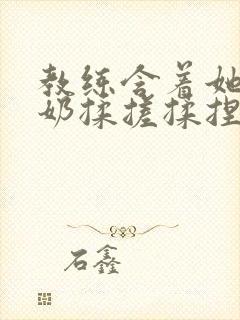 教练含着她
奶揉搓揉捏
石鑫